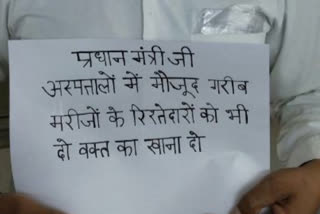 प्रधान मंत्री जी
अस्पतालों में मौजूद गरीब
मरीजों के रिश्तेदारों को भी
दो वक्त का खाना दो